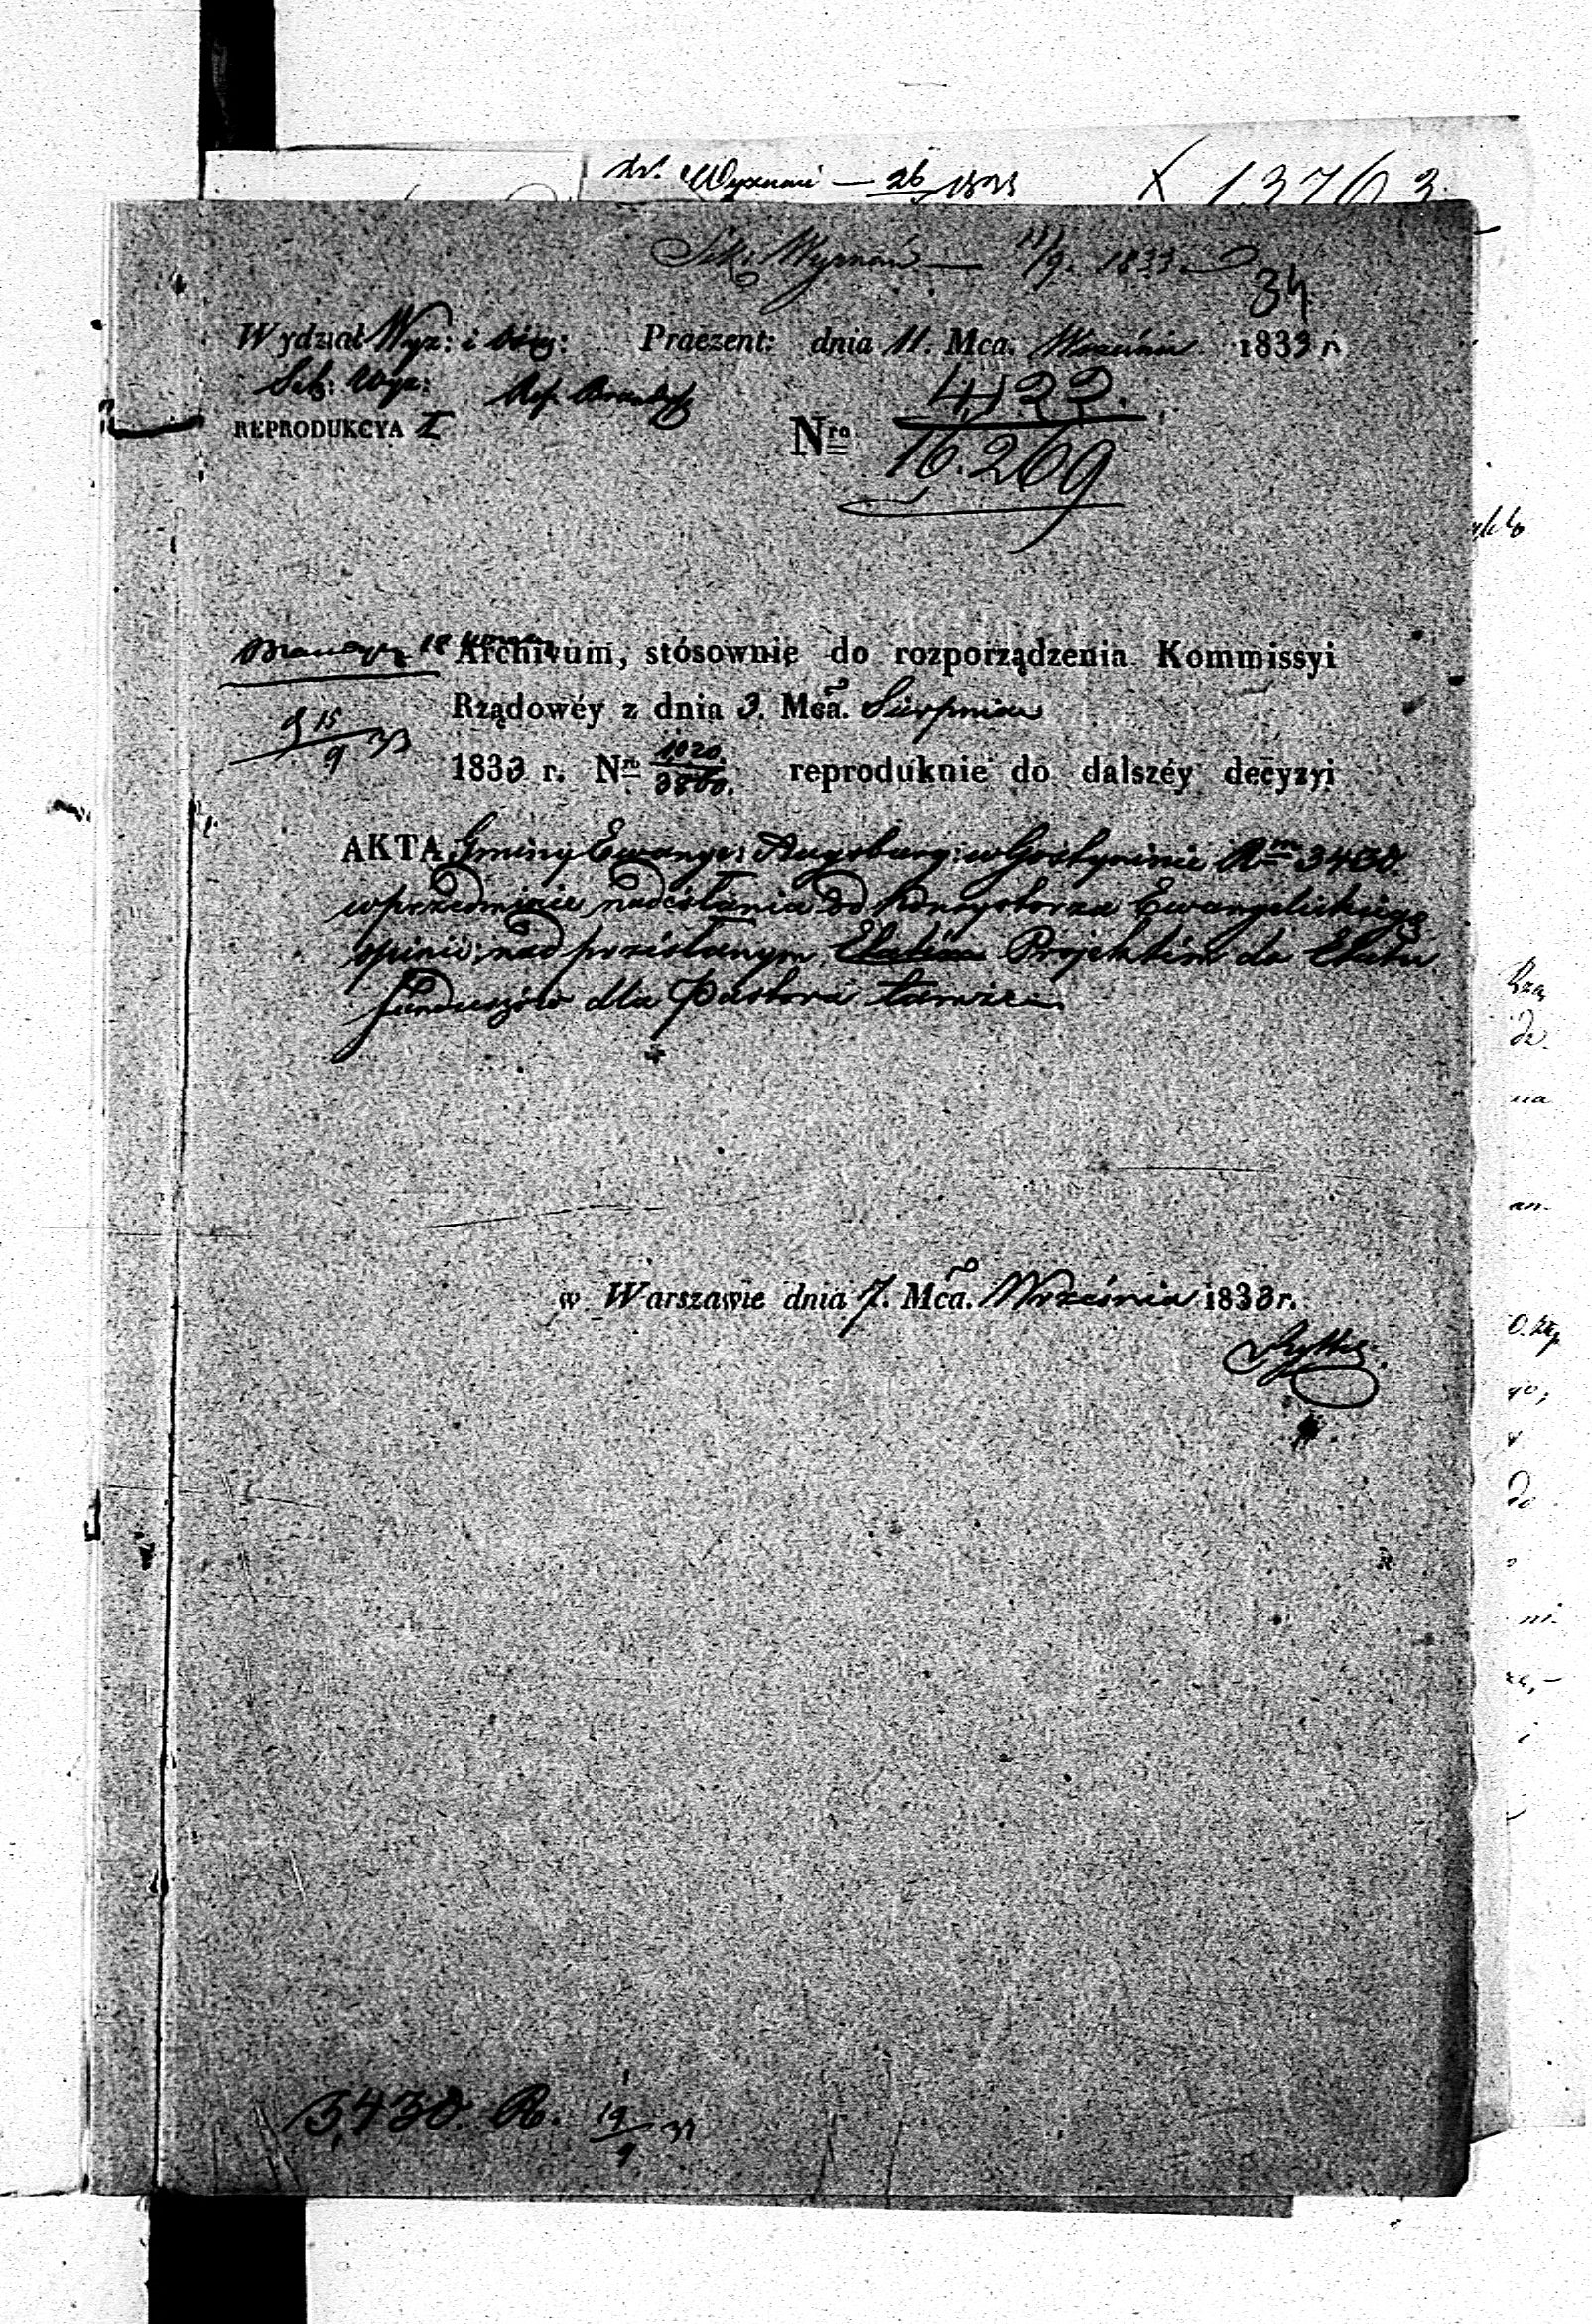 Wyznań — 26/ 1833 X 13763
Sek: Wyznań — 13/9. 1833.
34
Wydział Wyz: i Praezent: dnia 11. Mca. Września 1833 r.
Sek: Wyz: Ref.
REPRODUKCYA I Nro 4,122. / 16.269
Archivum, stósownie do rozporządzenia Kommissyi
Rządowéy z dnia 3. Mca. Sierpnia
15/9 33
1833 r. Nro 1020. / 3860. reproduknie do dalszéy decyzyi
AKTA Gminy Ewange: Augsburg: w Gostyninie Rm 3430.
w przedmiocie nadesłania od Konsystorza Ewangelickiego
opinii nad przesłanym Etatem Projektem do Etatu
funduszów dla Pastora tamże
w Warszawie dnia 7. Mca. Września 1833 r.
3,430. R. 19/9 33